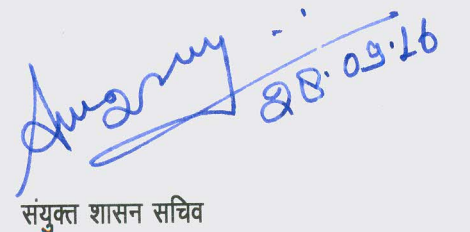 28.09.16
संयुक्त शासन सचिव